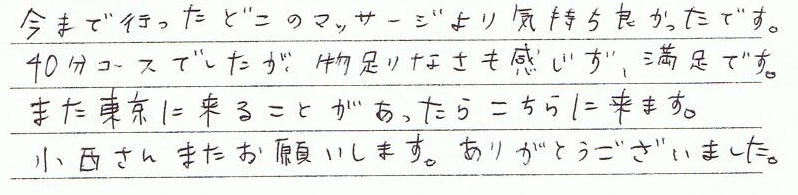 今まで行ったどこのマッサージより気持ち良かったです。
40分コースでしたが、物足りなさも感じず、満足です。
また東京に来ることがあったらこちらに来ます。
小西さんまたお願いします。ありがとうございました。